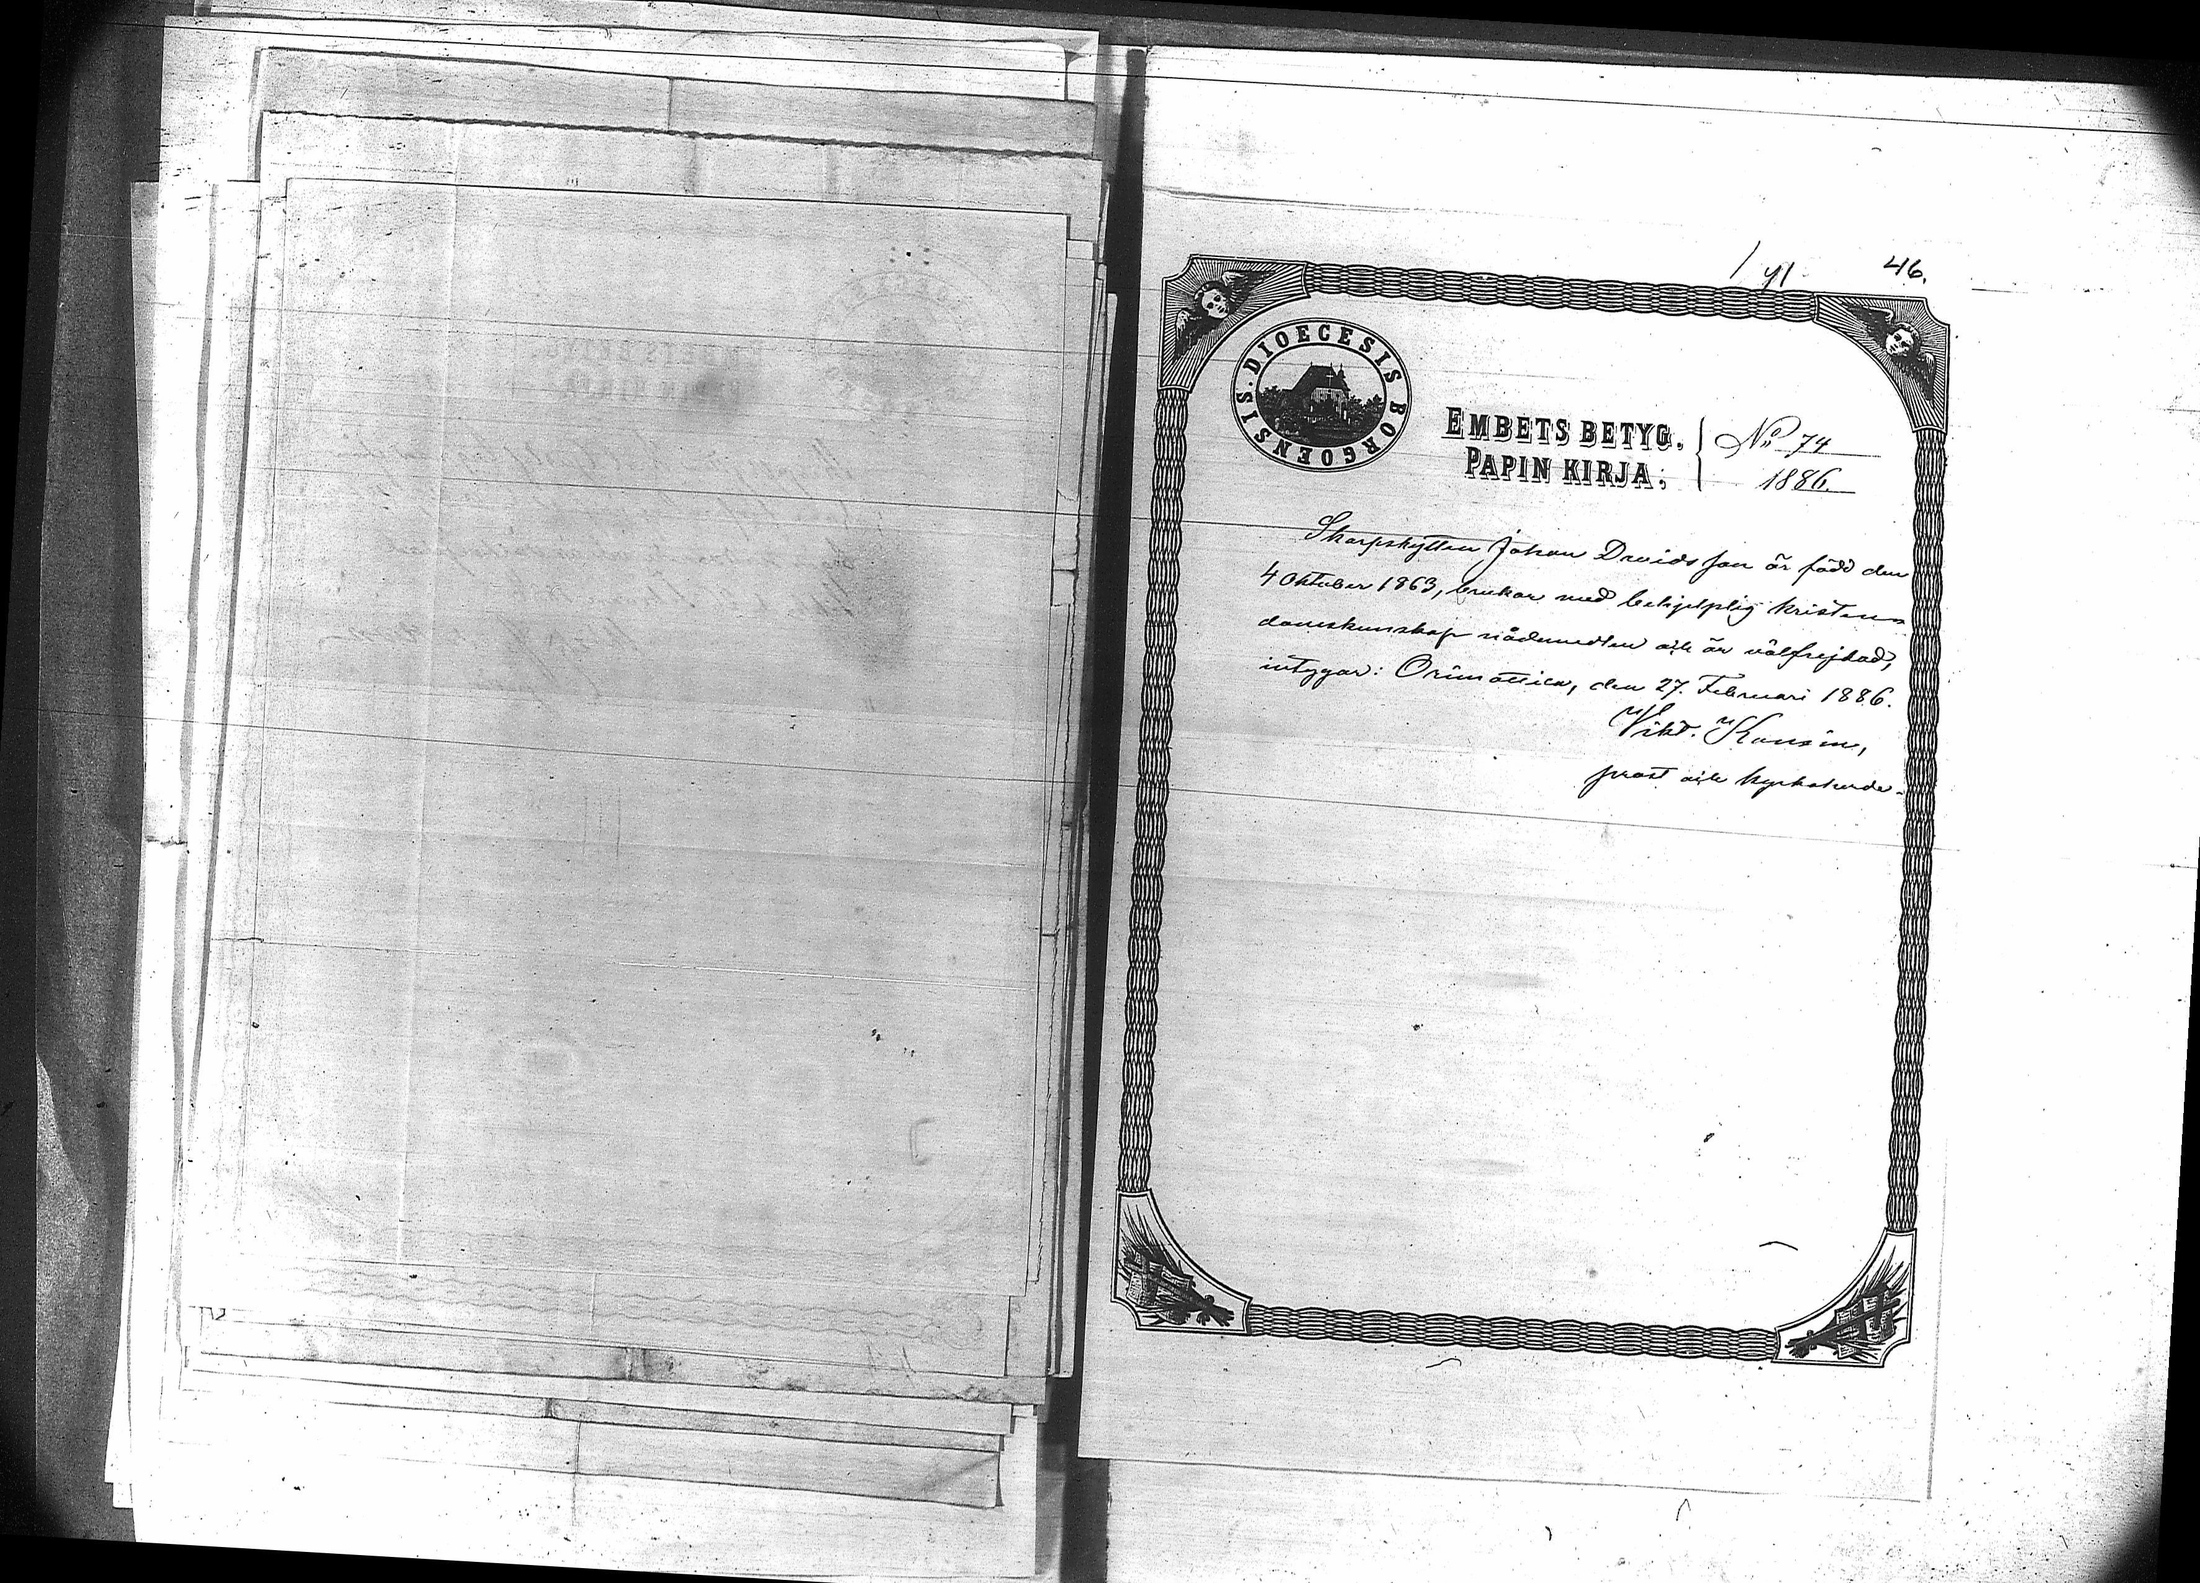 46.
DIOECESIS BORGOENSIS.
EMBETS BETYG. No 74
PAPIN KIRJA; 1886.
Skarpskytten Johan Davidsson är född den
4 Oktober 1863, brukar med behjelplig kristen-
domskunskap nådemedlen och är välfrejdad,
intygar: Orimattila, den 27. Februari 1886.
Vikt.
prost och kyrkoherde.